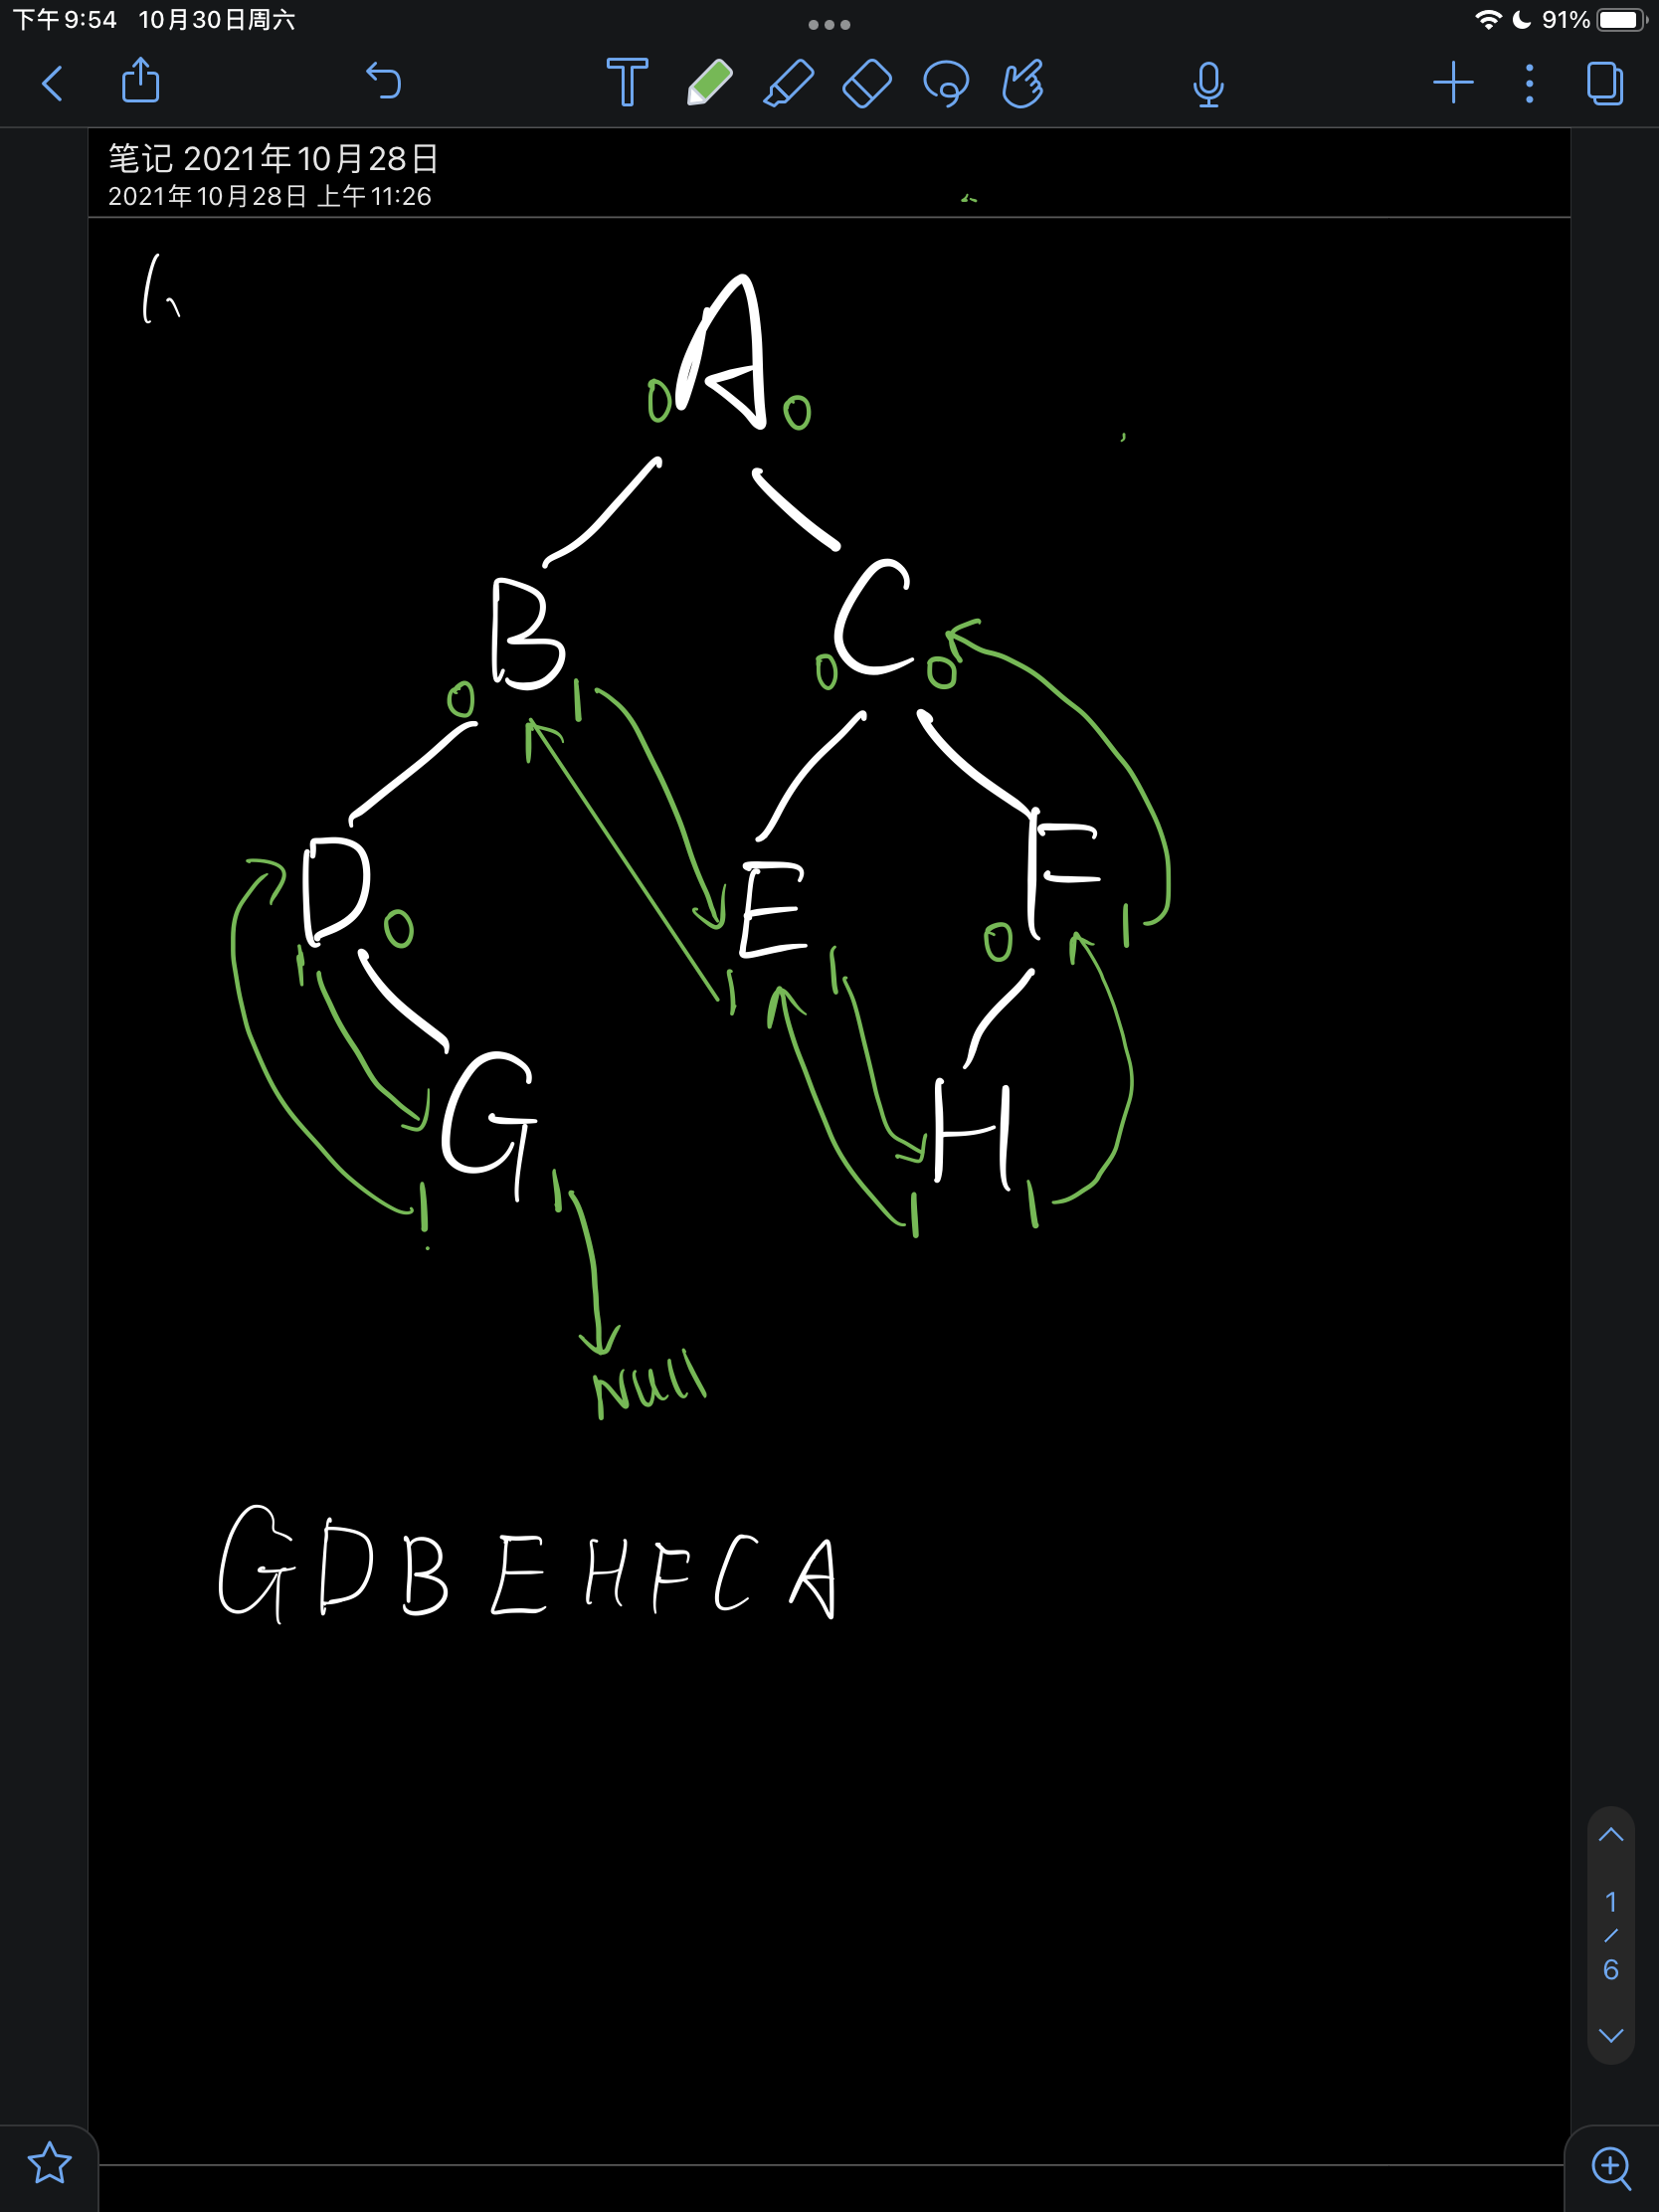 下午9:54 10月30日周六
91%
笔记 2021年10月28日
2021年10月28日 上午11:26
1、
A
0 0
B C
0 1 0 0
D E F
1 0 1 1 0 1
G H
1 1 1 1
Null
G D B E H F C A
1
/
6